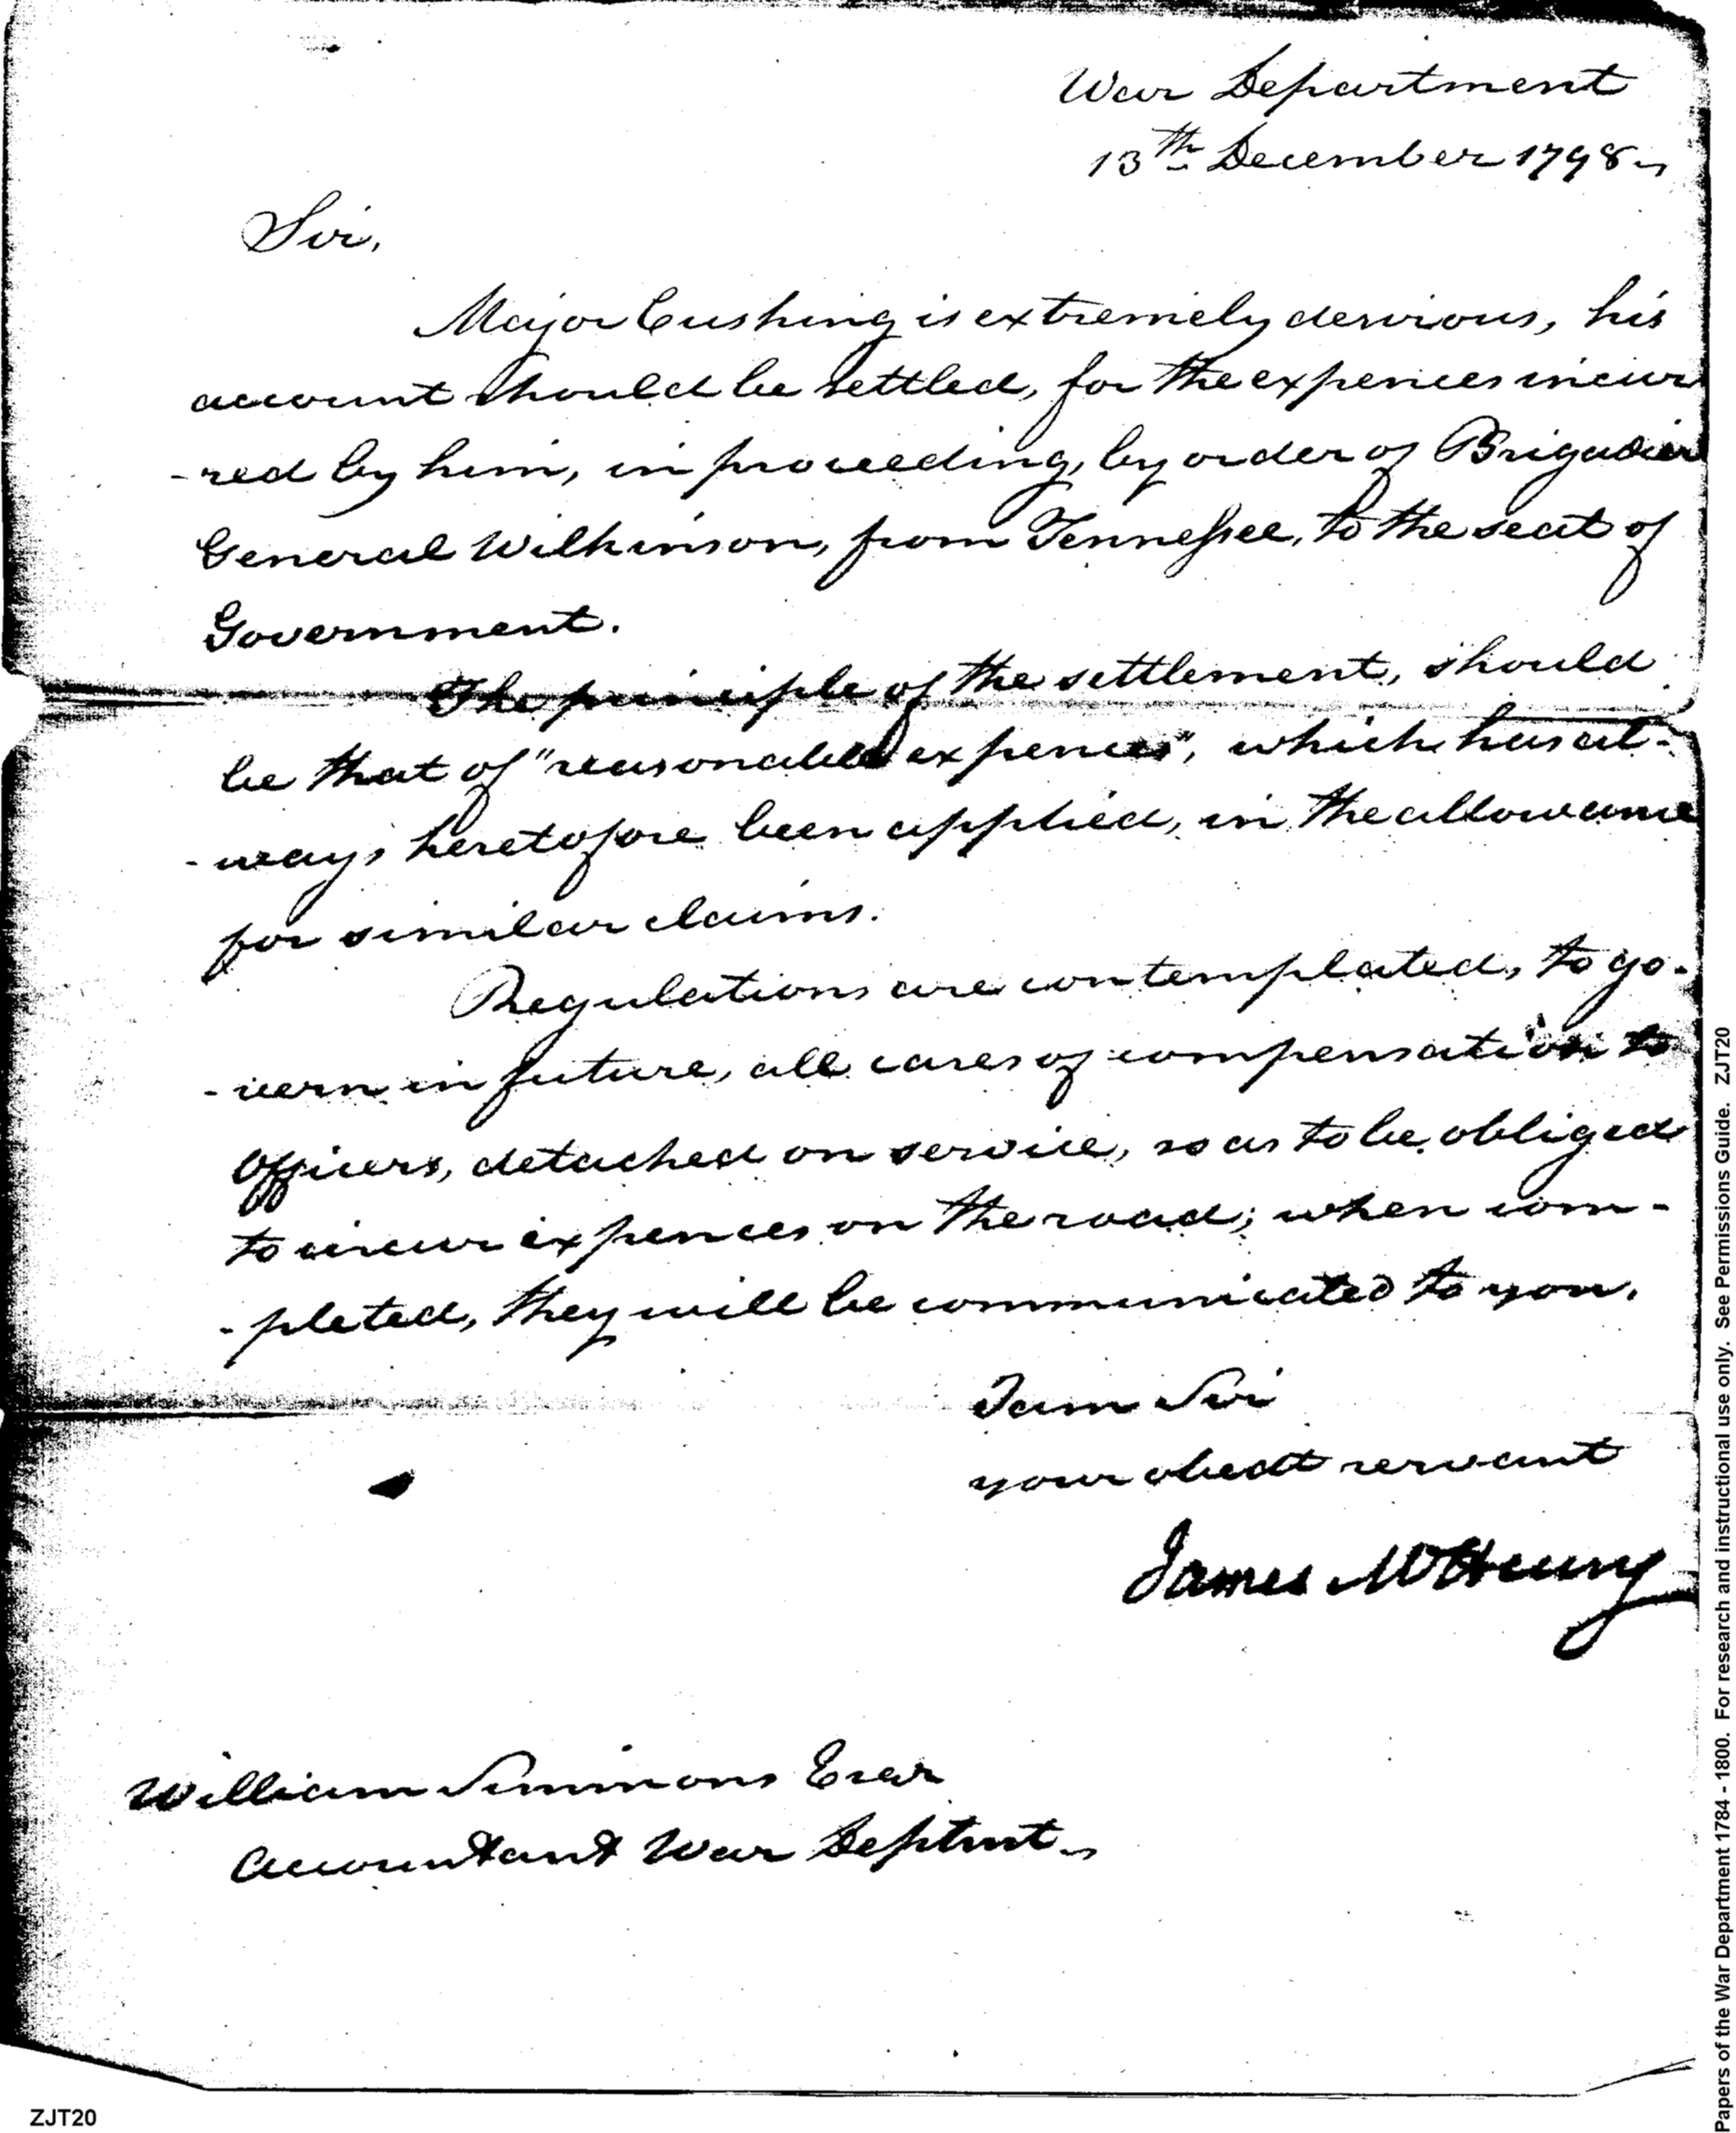 War Department
13th December 1798
Sir,
Major Cushing is extremely desirous, his
account should be settled, for the expences incur
-red by him, in proceeding, by order of Brigadier
General Wilkinson, from Tennessee, to the seat of
Government.
The principle of the settlement, should
be that of "reasonable expences", which has al-
-ways heretofore been applied, in the allowance
for similar claims.
Regulations are contemplated, to go-
-vern in future, all cases of compensation to
Officers, detached on service, so as to be obliged
to incur expences on the road; when com-
-pleted, they will be communicated to you.
I am Sir
your obedt servant
James McHenry
William Simmons Esqr
Accountant War Deptmt
ZJT20
Papers of the War Department 1784 - 1800. For research and instructional use only. See Permissions Guide. ZJT20